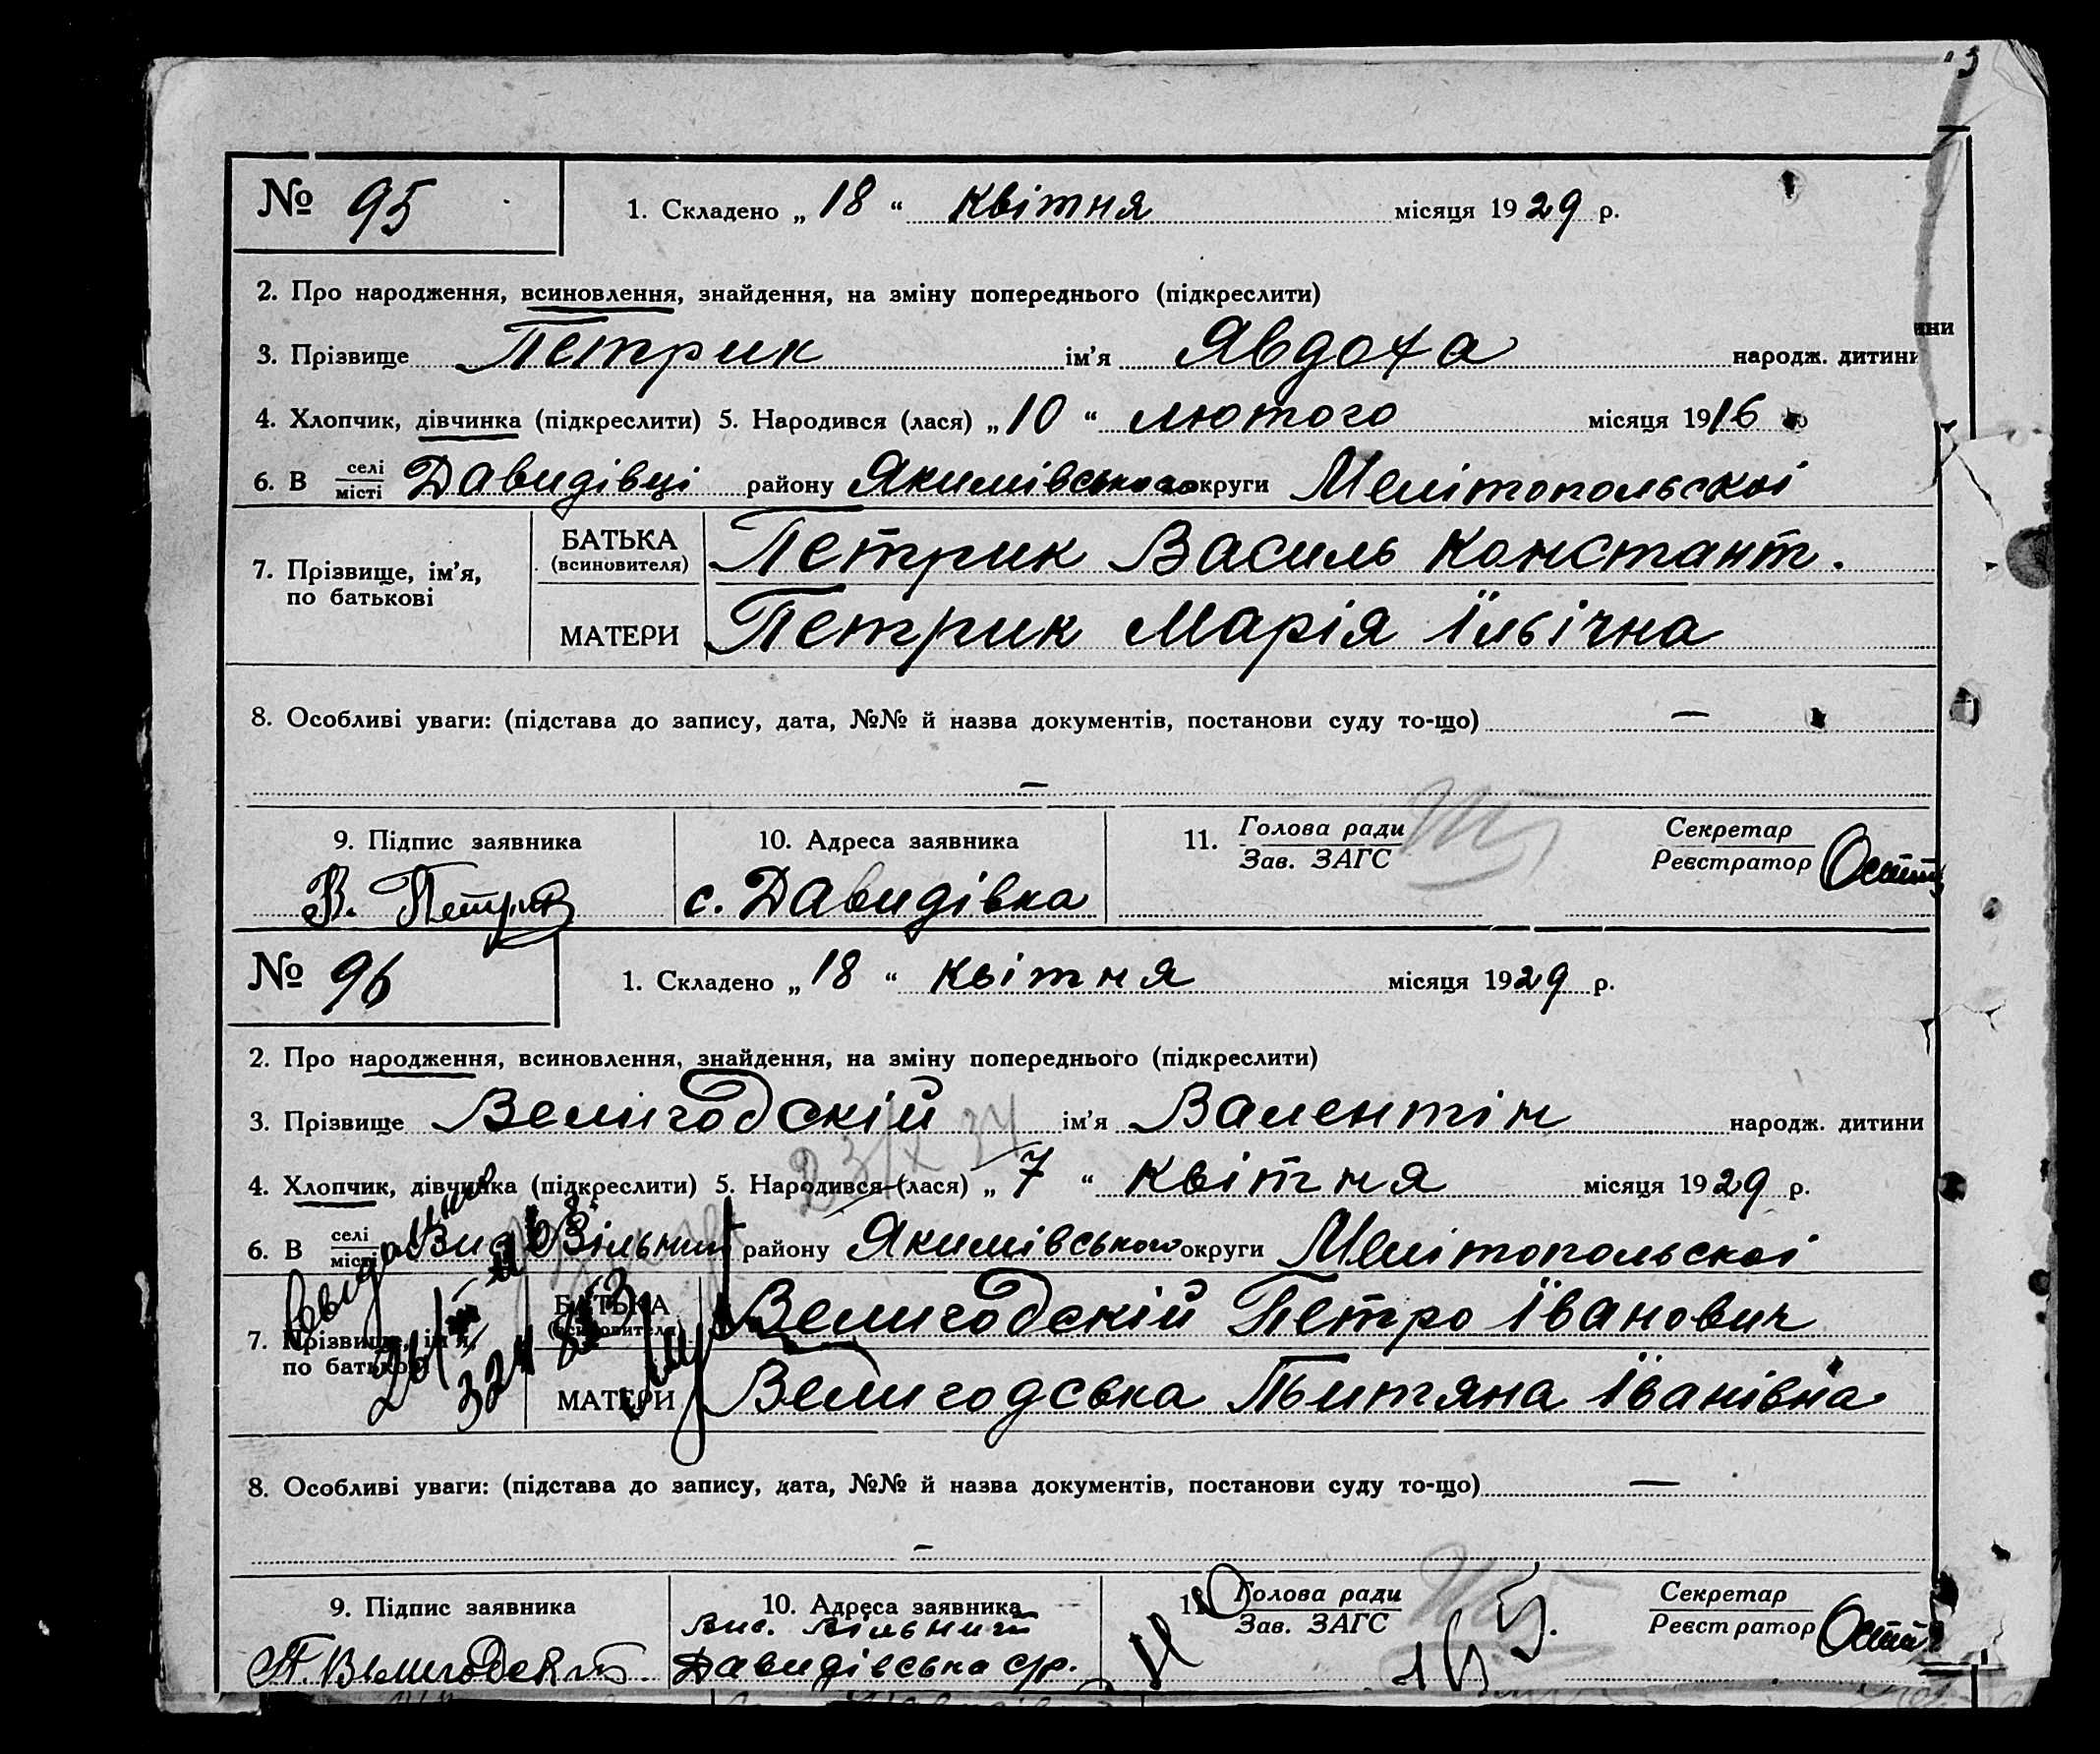 № 95
1. Складено „ 18 “ квітня місяця 1929 р.
2. Про народження, всиновлення, знайдення, на зміну попереднього (підкреслити)
3. Прізвище Петрик ім'я Явдоха народж. дитини
4. Хлопчик, дівчинка (підкреслити) 5. Народився (лася) „ 10 “ лютого місяця 1916
6. В селі/місті Давидівці району Якимівського округи Мелітопольскоі
7. Прізвище, ім'я, по батькові
БАТЬКА (всиновителя) Петрик Василь Констант.
МАТЕРИ Петрик Марія Їльічна
8. Особливі уваги: (підстава до запису, дата, №№ й назва документів, постанови суду то-що) —
—
9. Підпис заявника 10. Адреса заявника 11. Голова ради/Зав. ЗАГС Секретар/Реєстратор
В. Петрик с. Давидівка
№ 96
1. Складено „ 18 “ квітня місяця 1929 р.
2. Про народження, всиновлення, знайдення, на зміну попереднього (підкреслити)
3. Прізвище Велигодскій ім'я Валентін народж. дитини
23/X 34
4. Хлопчик, дівчинка (підкреслити) 5. Народився (лася) „ 7 “ квітня місяця 1929 р.
6. В селі/місті Вільний району Якимівського округи Мелітопольскоі
7. Прізвище, ім'я, по батькові
БАТЬКА (всиновителя) Велигодскій Петро Їванович
МАТЕРИ Велигодська Тытяна Їванівна
8. Особливі уваги: (підстава до запису, дата, №№ й назва документів, постанови суду то-що) —
—
9. Підпис заявника 10. Адреса заявника 11. Голова ради/Зав. ЗАГС Секретар/Реєстратор
вис. Вільний
Давидівська с/р.